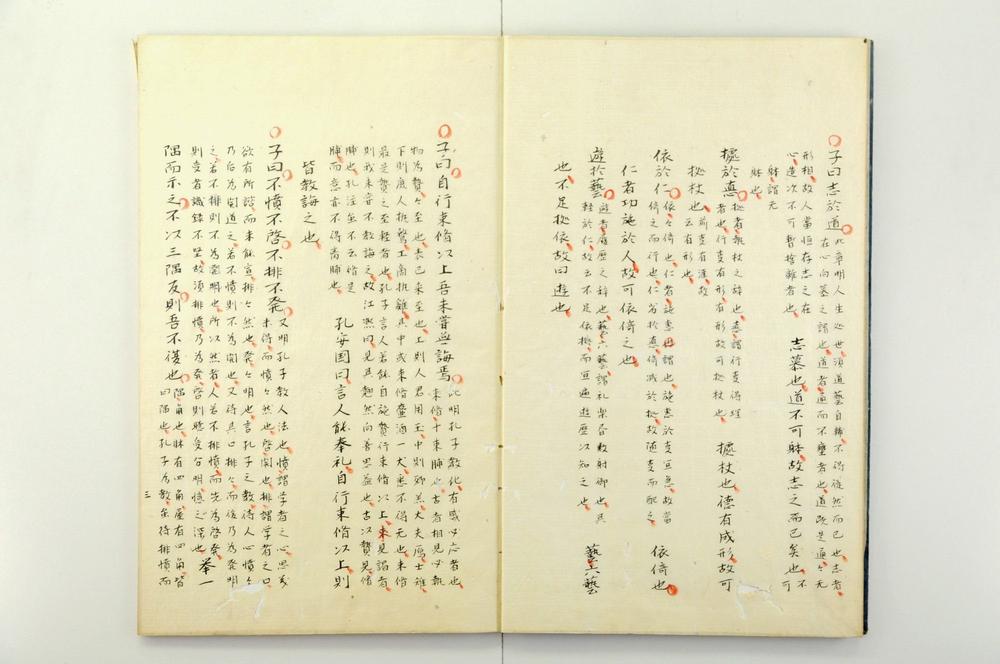 子曰志於道此章明人生處世須道藝自輔不得徒然而已也志者
在心向慕之謂也道者通而不壅者也道既是通々无
形相故人當恒存志之在
心造次不可暫捨離者也
志慕也道不可躰故志之而已矣也不
可
躰謂无
躰也
據於悳據者執杖之辞也悳謂行事得理
者也行事有形有形故可據杖也
據杖也德有成形故可
據杖也前事有涯故
云有形也
依於仁依々倚也仁者施惠之謂也施惠於事宜急故當
倚之而行也仁劣於悳倚减於據故随事而配之
依倚也
仁者功施於人故可依倚之也
遊於藝遊者履歴之辞也藝六藝謂礼樂書數射御也其
輕於仁故云不足依據而宜遍遊歴以知之也
藝六藝
也不足據依故曰遊也
子曰自行束脩以上吾未甞無誨焉此明孔子教化有感必應者也
束脩十束脯也古者相見必執
物為贄々至也表己來至也上則人君用玉中則卿羔大夫鴈士雉
下則庶人執鶩工商執雞其中或束脩壷酒一犬悉不得无也束脩
最是贄之至輕者也孔子言人若能自施贄行束脩以上來見謂者
則我未甞不教誨之故江熙曰見其翹然向善思益也古以贄見脩
脯也孔注虽不云脩是
脯而意亦不得离脯也
孔安國曰言人能奉礼自行束脩以上則
皆教誨之也
子曰不憤不啓不悱不發又明孔子教人法也憤謂學者之心思義
未得而憤々然也啓開也悱謂学者之口
欲有所諮而未能宣悱々然也發々明也言孔子之教待人心憤々
乃后為開道之若不憤則不為開也又待其口悱々而後乃為發明
之若不悱則不為發明也所以然者人若不悱憤而先為啓發
則受者識録不堅故須悱憤乃為發啓則聴受分明憶之深也
舉一
隅而示之不以三隅反則吾不復也隅角也牀有四角屋有四角皆
曰隅也孔子為教ゑ待悱憤而
三